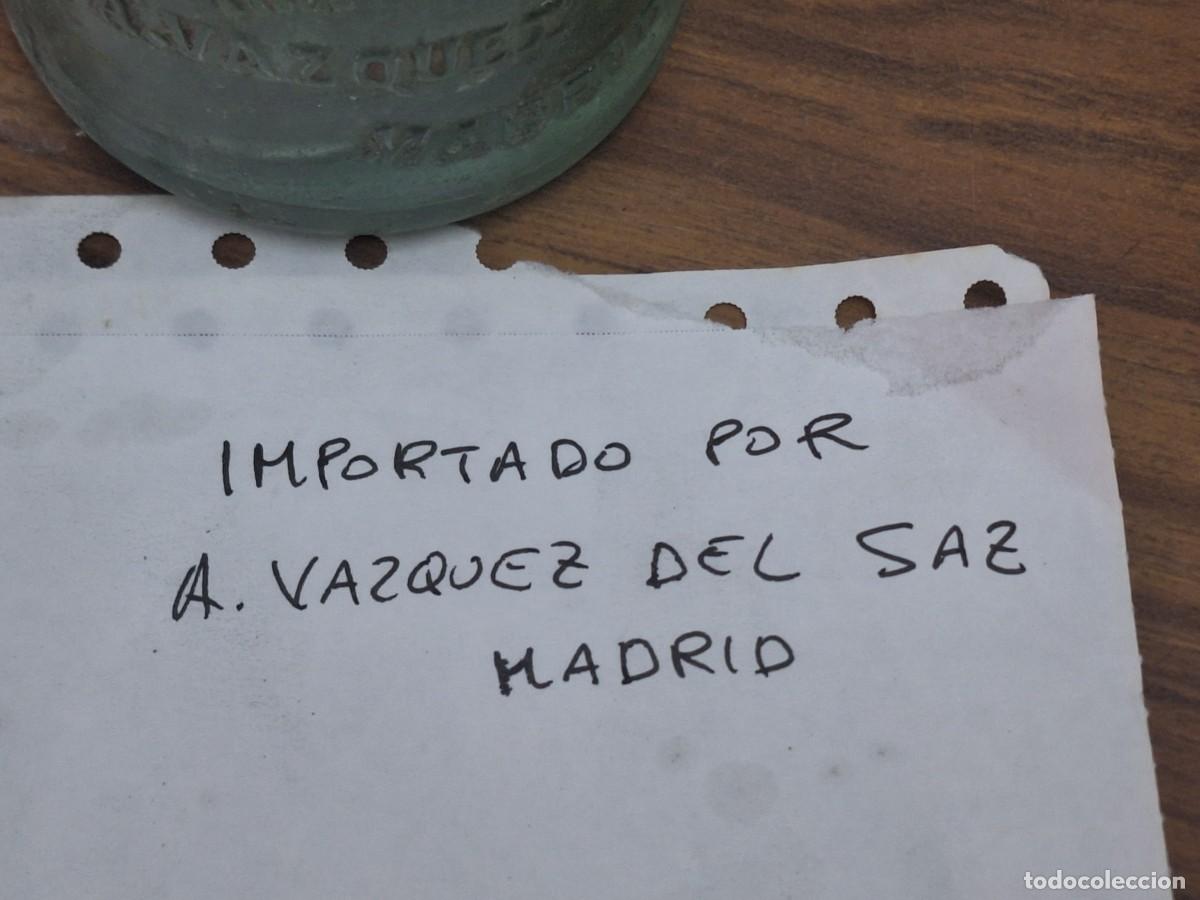 VAZQUEZ
IMPORTADO POR
A. VAZQUEZ DEL SAZ
MADRID
todocoleccion